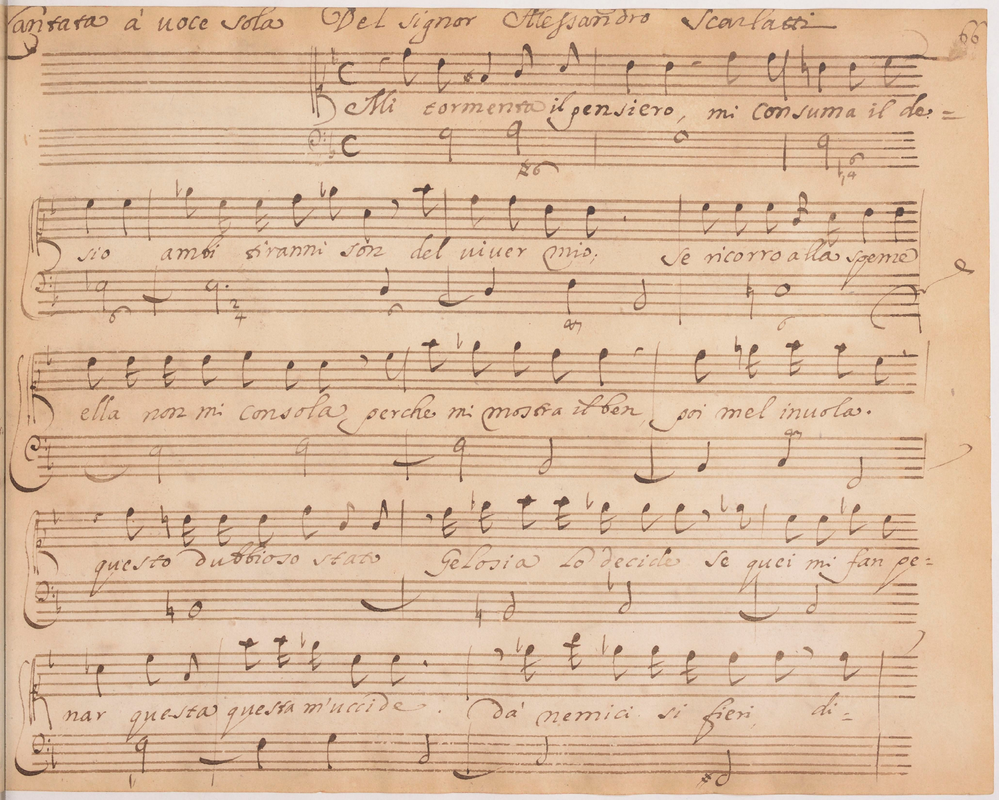 Cantata à voce sola Del Signor Alessandro Scarlatti
66
Mi tormenta il pensiero, mi consuma il de=
sio ambi tiranni són del viver mio; se ricorro alla speme
ella non mi consola perche mi mostra il ben poi mel invola.
questo dubbioso stato Gelosia lo decide se quei mi fan pe=
nar questa questa m'uccide. da' nemici si fieri di=